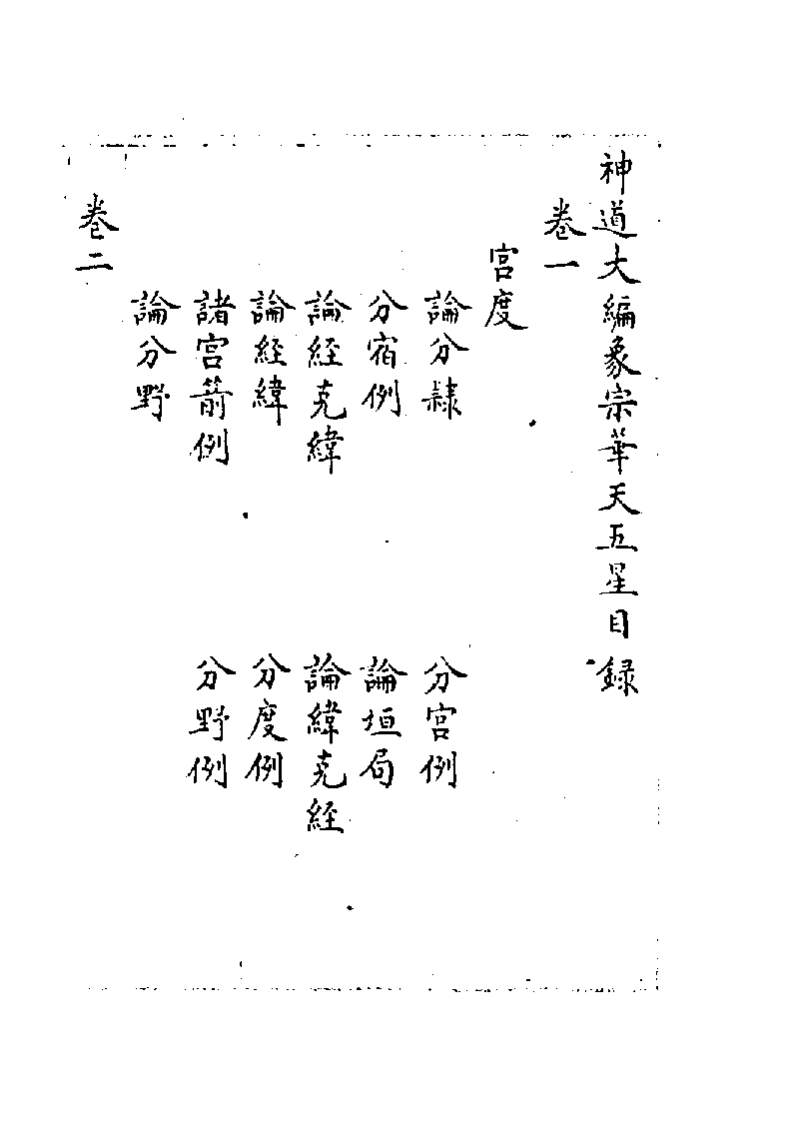 神道大編象宗華天五星目錄
卷一
宮度
論分隸
分宮例
分宿例
論垣局
論經克緯
論緯克經
論經緯
分度例
諸宮箭例
分野例
論分野
卷二